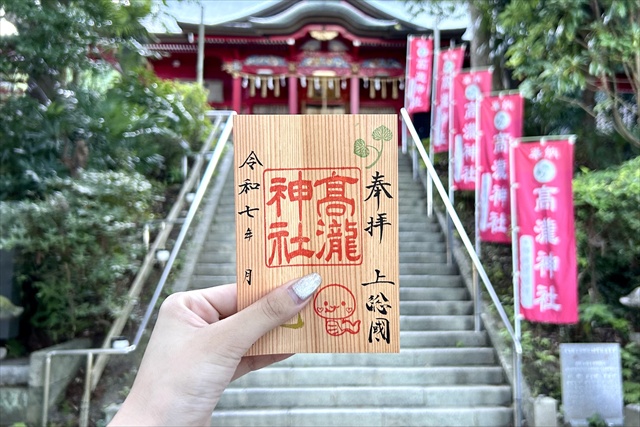 奉拝
上総國
高瀧
神社
令和七年 月
高瀧神社
高瀧神社
高瀧神社
高瀧神社